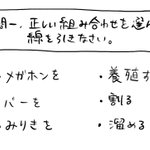 問一. 正しい組み合わせを選ん
線を引きなさい。
メガホンを ・養殖す
バーを ・割る
みりきを ・溜める